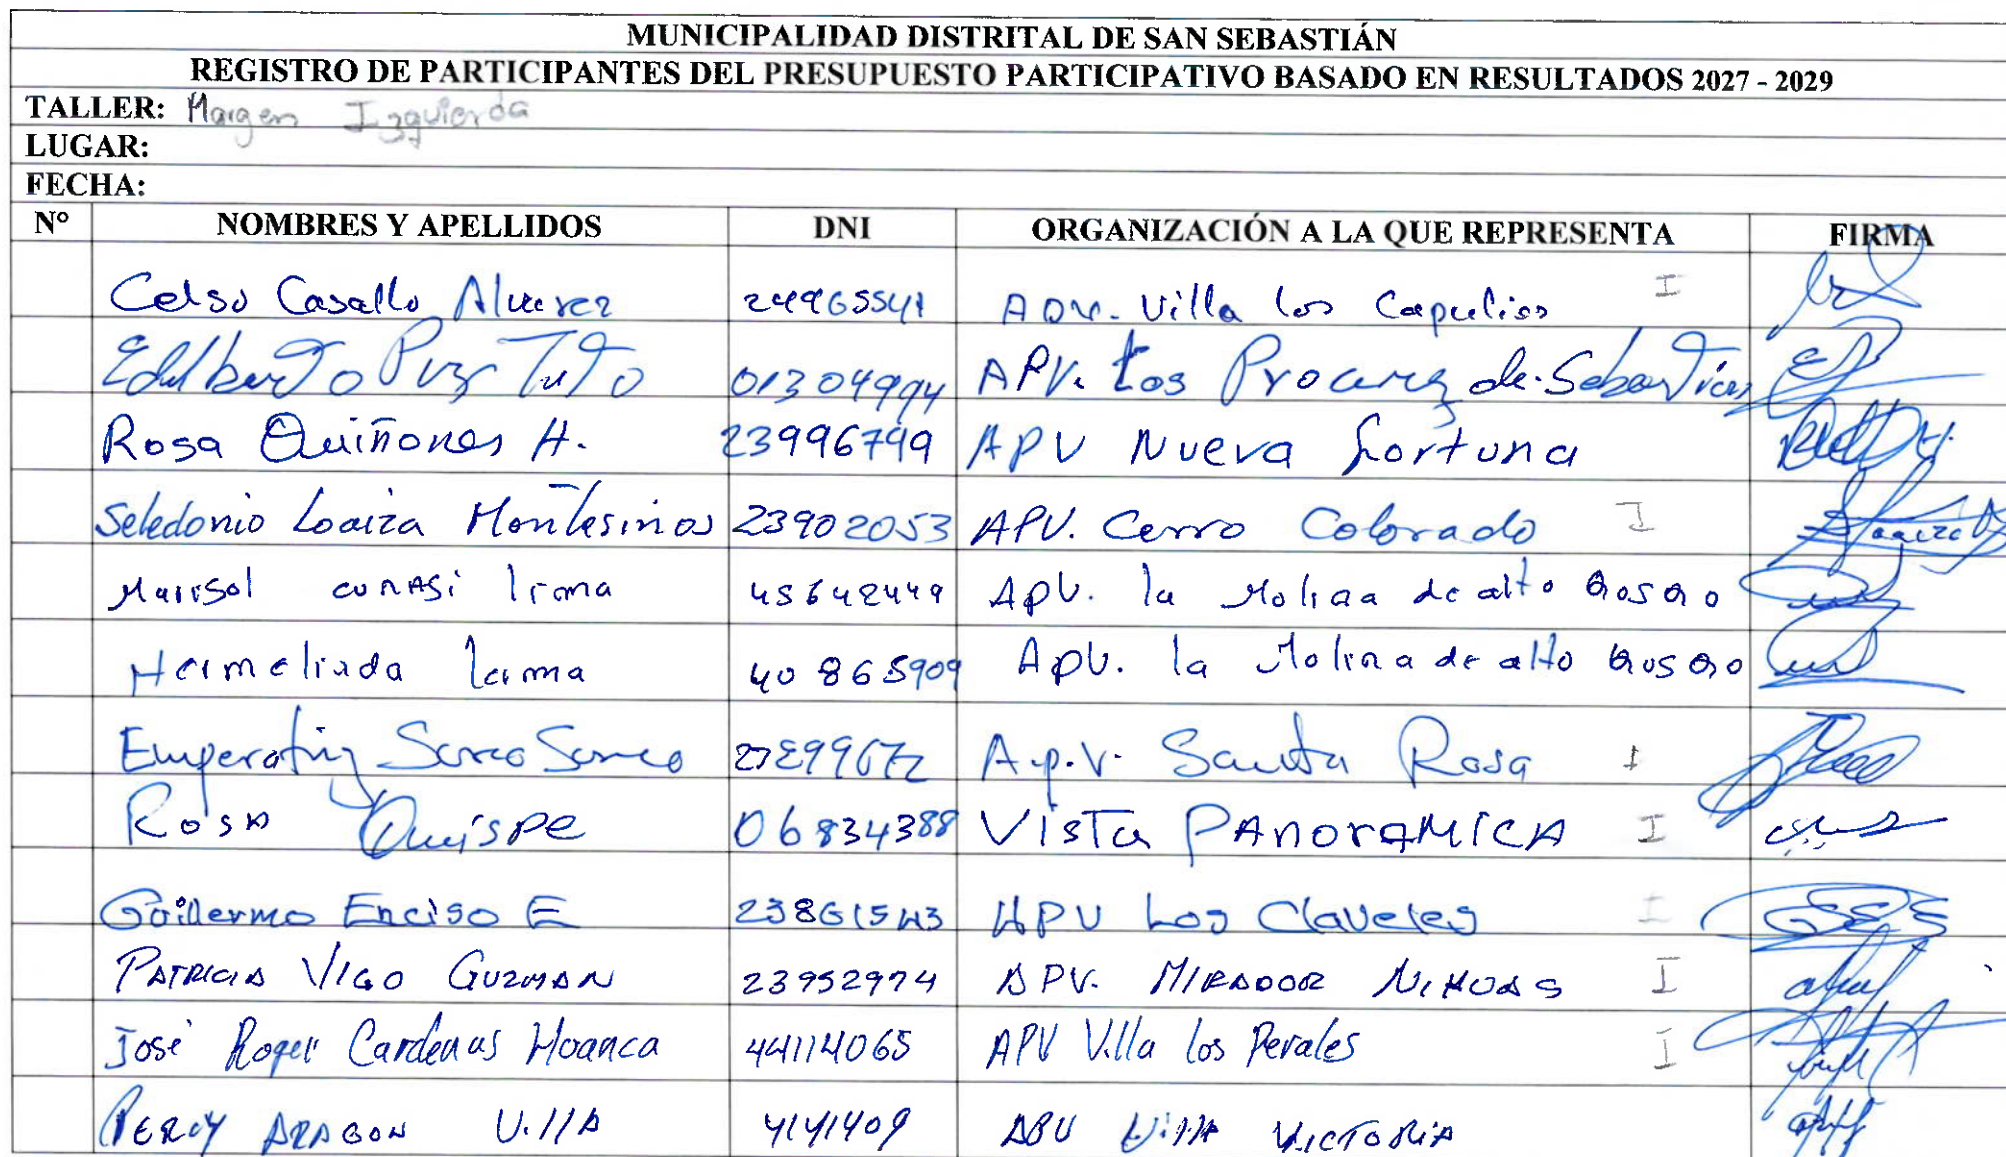 MUNICIPALIDAD DISTRITAL DE SAN SEBASTIÁN
REGISTRO DE PARTICIPANTES DEL PRESUPUESTO PARTICIPATIVO BASADO EN RESULTADOS 2027 - 2029
TALLER: Margen Izquierda
LUGAR:
FECHA:
N° NOMBRES Y APELLIDOS DNI ORGANIZACIÓN A LA QUE REPRESENTA FIRMA
Celso Casallo Alvarez 24965541 Villa los Capulies I
Edilberto 01304994 APV. Los de Sebastian
Rosa Quiñones H. 23996799 APV Nueva fortuna
Seledonio Loaiza Montesinos 23902053 APV. Cerro Colorado I
Marisol cunasi lrma 45642449 ApV. la Molina de alto
Hermelinda lerma 40865909 ApV. la Molina de alto
Emperatriz A.p.V. Santa Rosa I
Rosa Quispe 06834388 Vista PANORAMICA I
Guillermo Enciso E APV Los Claveles I
PATRICIA VIGO GUZMAN 23952974 APV. MIRADOR I
José Roger Cardenas Hoanca 44114065 APV Villa los Perales I
PERCY ARAGON Villa 4141409 Villa VICTORIA